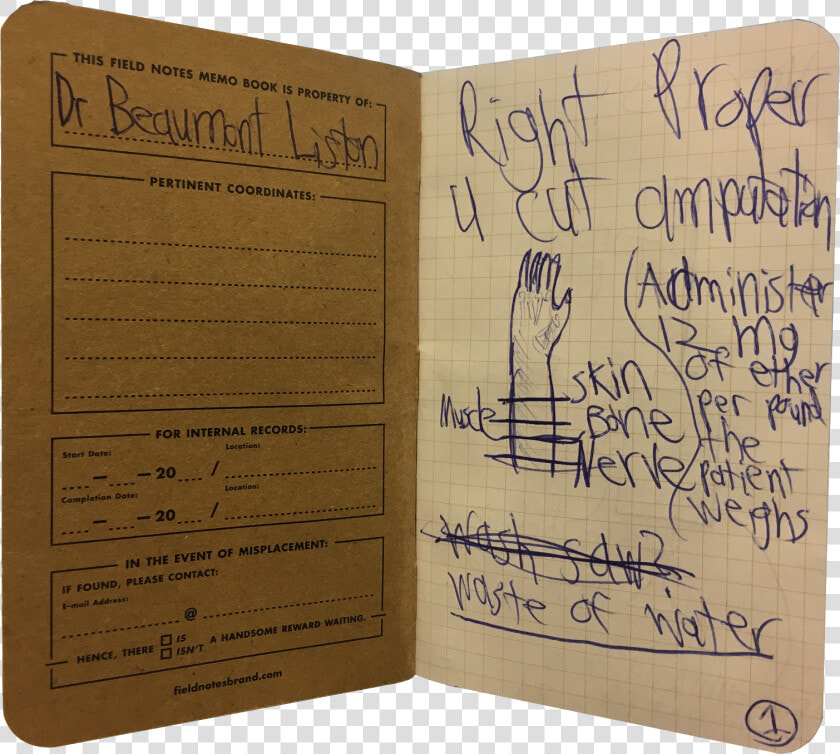 THIS FIELD NOTES MEMO BOOK IS PROPERTY OF:
Dr Beaumont Liston
PERTINENT COORDINATES:
FOR INTERNAL RECORDS:
Start Date:
Location:
— — 20 /
Completion Date:
Location:
— — 20 /
IN THE EVENT OF MISPLACEMENT:
IF FOUND, PLEASE CONTACT:
E-mail Address:
@
HENCE, THERE ☐ IS ☐ ISN'T A HANDSOME REWARD WAITING.
fieldnotesbrand.com
Right Proper
u cut amputation
Administer
12 mg
of ether
per pound
the
patient
weighs
skin
Muscle
Bone
Nerve
wash saw?
waste of water
1